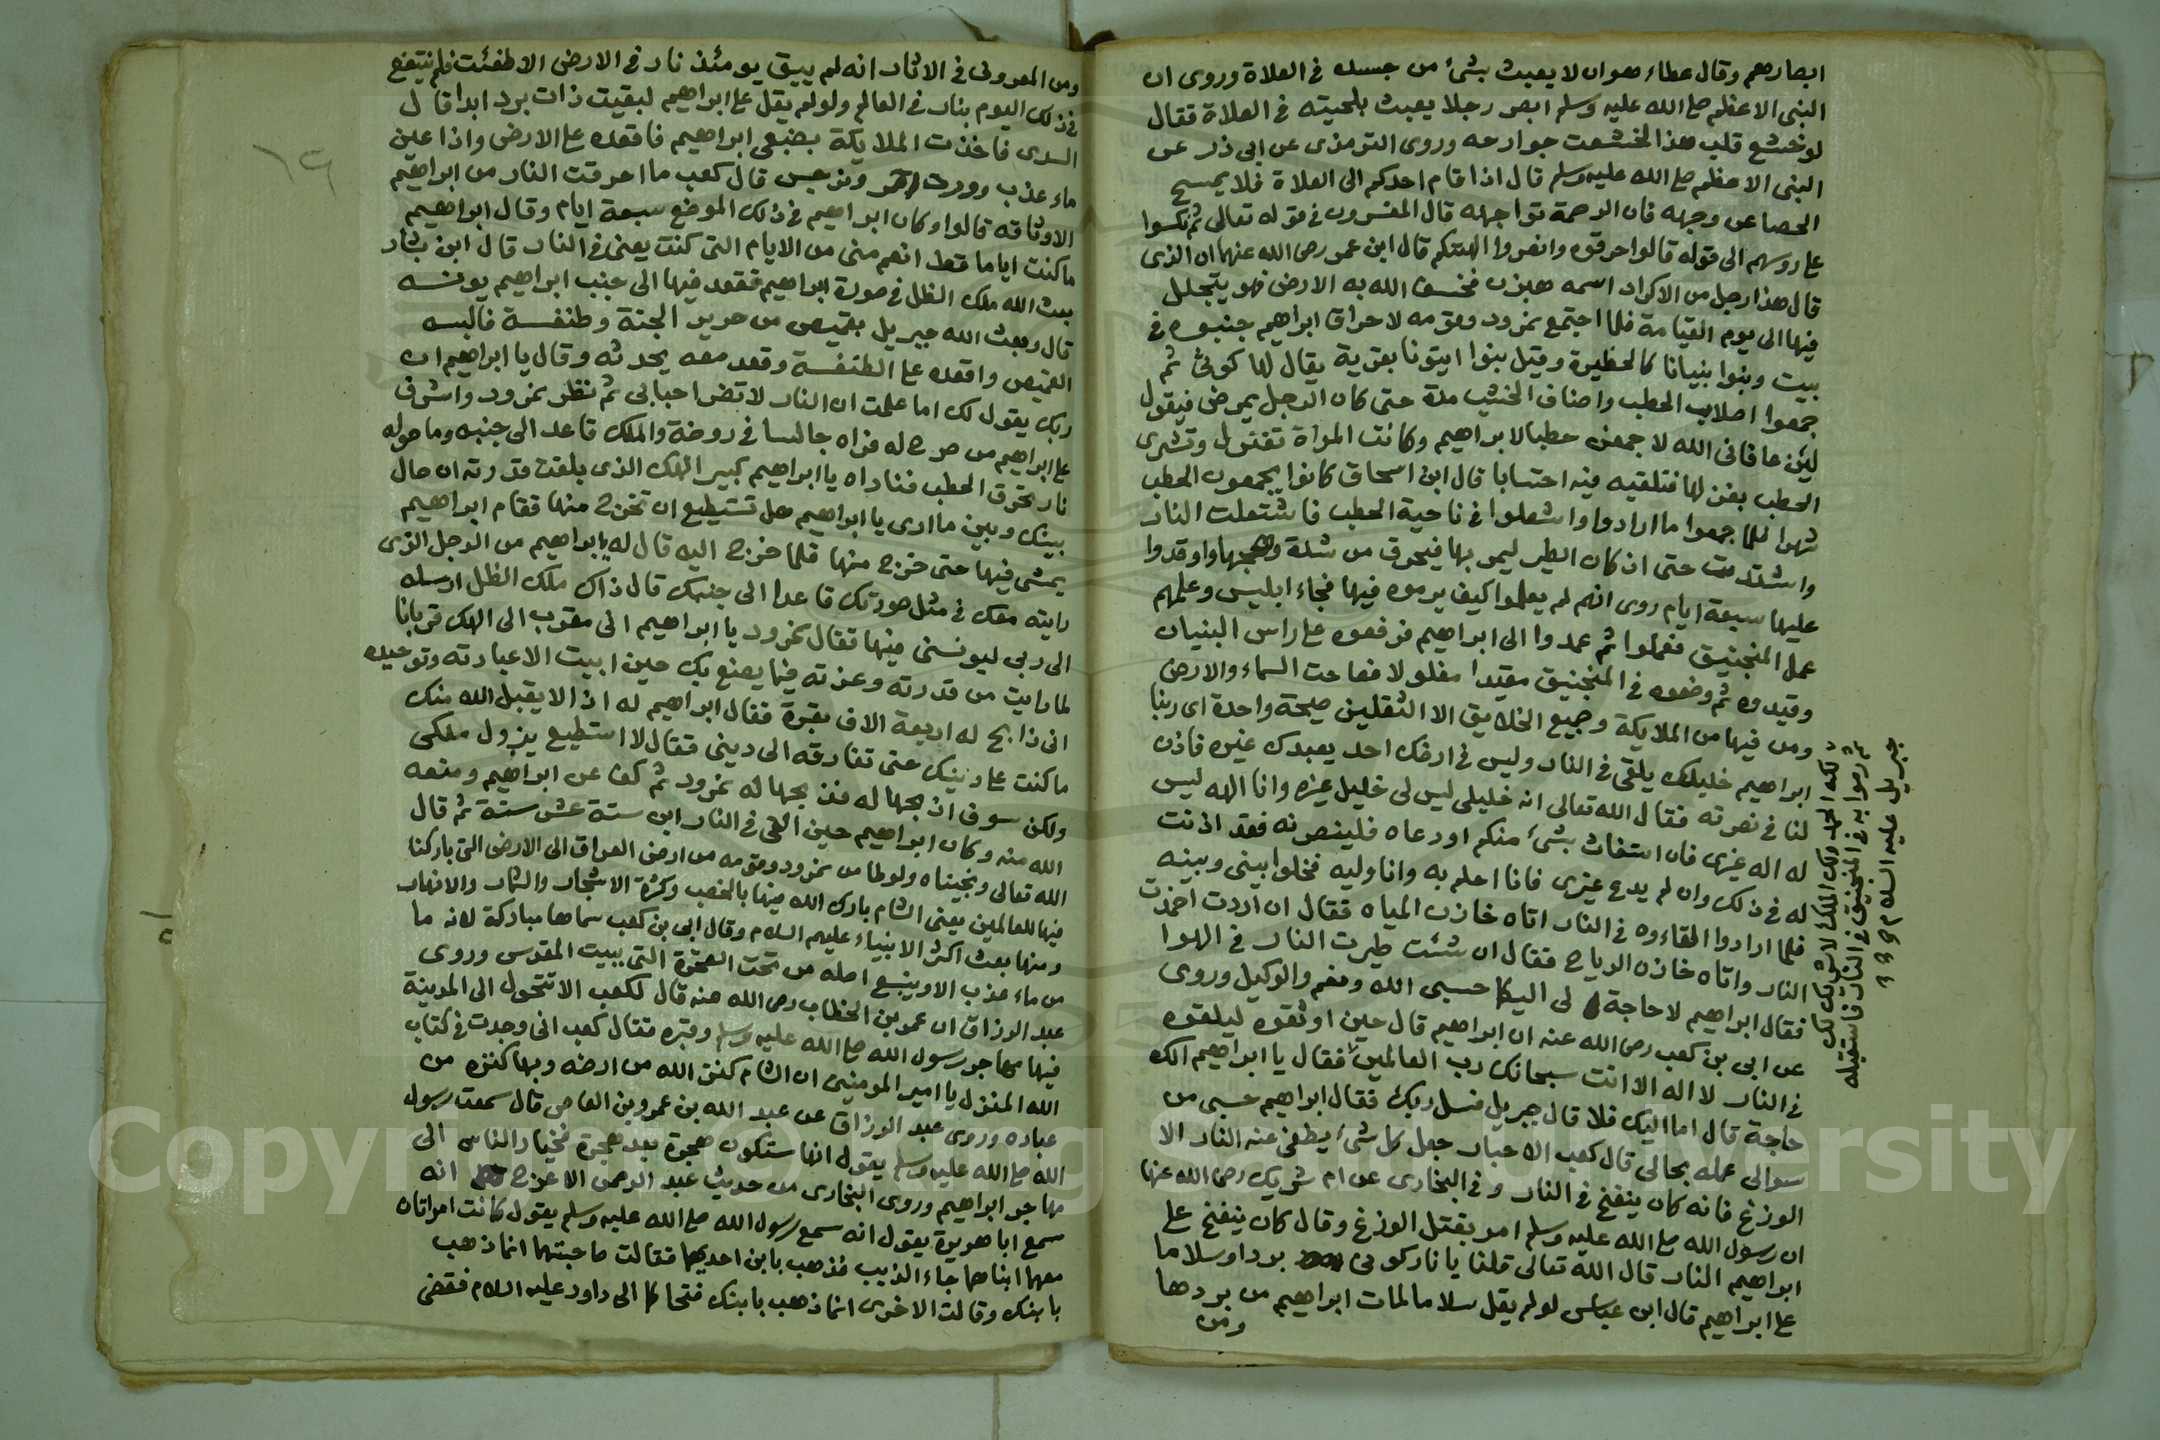 ابصارهم وقال عطاء هو ان لا يعبث بشئ من جسده في الصلاة وروى ان
النبى الاعظم صلى الله عليه وسلم ابصر رجلا يعبث بلحيته في الصلاة فقال
لو خشع قلب هذا لخشعت جوارحه وروى الترمذى عن ابى ذر عن
النبى الاعظم صلى الله عليه وسلم قال اذا قام احدكم الى الصلاة فلا يمسح
الحصا عن وجهه فان الرحمة تواجهه قال المفسرون في قوله تعالى ثم نكسوا
على روسهم الى قوله قالوا حرقوه وانصروا الهتكم قال ابن عمر رضى الله عنهما ان الذى
قال هذا رجل من الاكراد اسمه هيزن فخسف الله به الارض فهو يتجلجل
فيها الى يوم القيامة فلما اجتمع نمرود وقومه لاحراق ابراهيم حبسوه في
بيت وبنوا بنيانا كالحظيرة وقيل بنوا ايتونا بقرية يقال لها كوثى ثم
جمعوا اصلاب الحطب واصناف الخشب مدة حتى كان الرجل يمرض فيقول
لئن عافانى الله لاجمعن حطبا لابراهيم وكانت المراة تغزل وتشرى
الحطب بغزلها فتلقيه فيه احتسابا قال ابن اسحاق كانوا يجمعون الحطب
شهرا فلما جمعوا ما ارادوا واشعلوا في ناحية الحطب فاشتعلت النار
واشتدت حتى ان كان الطير ليمر بها فيحرق من شدة وهجها واوقدوا
عليها سبعة ايام روى انهم لم يعلموا كيف يرموه فيها فجاء ابليس وعلمهم
عمل المنجنيق فعملوا ثم عمدوا الى ابراهيم فرفعوه على راس البنيان
وقيدوه ثم وضعوه في المنجنيق مقيدا مغلولا فصاحت السماء والارض
ومن فيها من الملايكة وجميع الخلايق الا الثقلين صيحة واحدة اى ربنا
ابراهيم خليلك يلقى في النار وليس في ارضك احد يعبدك غيره فاذن
لنا في نصرته فقال الله تعالى انه خليلى ليس لى خليل غيره وانا الهه ليس
له اله غيرى فان استغاث بشئ منكم او دعاه فلينصرنه فقد اذنت
له في ذلك وان لم يدع غيرى فانا اعلم به وانا وليه فخلوا بينى وبينه
فلما ارادوا القاءوه في النار اتاه خازن المياه فقال ان اردت اخمدت
النار واتاه خازن الرياح فقال ان شئت طيرت النار في الهوا
فقال ابراهيم لا حاجة لى اليكما حسبى الله ونعم والوكيل وروى
عن ابى بن كعب رضى الله عنه ان ابراهيم قال حين اوثقوه ليلقوه
في النار لا اله الا انت سبحانك رب العالمين فقال يا ابراهيم الك
حاجة قال اما اليك فلا قال جبريل فسل ربك فقال ابراهيم حسبى من
سوالى علمه بحالى قال كعب الاحبار جعل كل شئ يطفئ عنه النار الا
الوزغ فانه كان ينفخ في النار وفي البخارى عن ام شريك رضى الله عنها
ان رسول الله صلى الله عليه وسلم امر بقتل الوزغ وقال كان ينفخ على
ابراهيم النار قال الله تعالى قلنا يا نار كونى بردا وسلاما
على ابراهيم قال ابن عباس لو لم يقل سلاما لمات ابراهيم من بردها
ومن
لك الحمد ولك الملك لا شريك لك
ثم رموا به في المنجنيق في النار فاستقبله
جبريل عليه السلام
ومن المعروف في الاثار انه لم يبق يومئذ نار في الارض الا طفئت فلم ينتفع
في ذلك اليوم بنار في العالم ولو لم يقل على ابراهيم لبقيت ذات برد ابدا قال
السدى فاخذت الملايكة بضبعى ابراهيم فاقعدوه على الارض واذا عين
ماء عذب وورد احمر ونرجس قال كعب ما احرقت النار من ابراهيم
الا وثاقه قالوا وكان ابراهيم في ذلك الموضع سبعة ايام وقال ابراهيم
ما كنت اياما قط انعم منى من الايام التى كنت يعنى في النار قال ابن يشار
بعث الله ملك الظل في صورة ابراهيم فقعد فيها الى جنب ابراهيم يونسه
قال وبعث الله جبريل بقميص من حرير الجنة وطنفسة فالبسه
القميص واقعده على الطنفسة وقعد معه يحدثه وقال يا ابراهيم ان
ربك يقول لك اما علمت ان النار لا تضر احبابى ثم نظر نمرود واشرف
على ابراهيم من صرح له فراه جالسا في روضة والملك قاعد الى جنبه وما حوله
نار تحرق الحطب فناداه يا ابراهيم كبير الهك الذى بلغت قدرته ان حال
بينك وبين ما ارى يا ابراهيم هل تستطيع ان تخرج منها فقام ابراهيم
يمشى فيها حتى خرج منها فلما خرج اليه قال له يا ابراهيم من الرجل الذى
رايته معك في مثل صورتك قاعدا الى جنبك قال ذاك ملك الظل ارسله
الى ربى ليونسنى فيها فقال نمرود يا ابراهيم انى مقرب الى الهك قربانا
لما رايت من قدرته وعزته فيما يصنع بك حين ابيت الا عبادته وتوحيده
انى ذابح له اربعة الاف بقرة فقال ابراهيم له اذا لا يقبل الله منك
ما كنت على دينك حتى تفارقه الى دينى فقال لا استطيع يزول ملكى
ولكن سوف اذبحها له فذبحها له نمرود ثم كف عن ابراهيم ومنعه
الله منه وكان ابراهيم حين القى في النار ابن ستة عشر سنة ثم قال
الله تعالى ونجيناه ولوطا من نمرود وقومه من ارض العراق الى الارض التى باركنا
فيها للعالمين يعنى الشام بارك الله فيها بالخصب وكثرة الاشجار والثمار والانهار
ومنها بعث اكثر الانبياء عليهم السلام وقال ابى بن كعب سماها مباركة لانه ما
من ماء عذب الا وينبع اصله من تحت الصخرة التى ببيت المقدس وروى
عبد الرزاق ان عمر بن الخطاب رضى الله عنه قال لكعب الا تتحول الى المدينة
فيها مهاجر رسول الله صلى الله عليه وسلم وقبره فقال كعب انى وجدت في كتاب
الله المنزل يا امير المومنين ان الشام كنز الله من ارضه وبها كنزه من
عباده وروى عبد الرزاق عن عبد الله بن عمرو بن العاص قال سمعت رسول
الله صلى الله عليه وسلم يقول انها ستكون هجرة بعد هجرة فخيار الناس الى
مهاجر ابراهيم وروى البخارى من حديث عبد الرحمن الاعرج انه
سمع ابا هريرة يقول انه سمع رسول الله صلى الله عليه وسلم يقول كانت امراتاه
معهما ابناهما جاء الذيب فذهب بابن احديهما فقالت صاحبتها انما ذهب
بابنك وقالت الاخرى انما ذهب بابنك فتحاكما الى داود عليه السلام فقضى